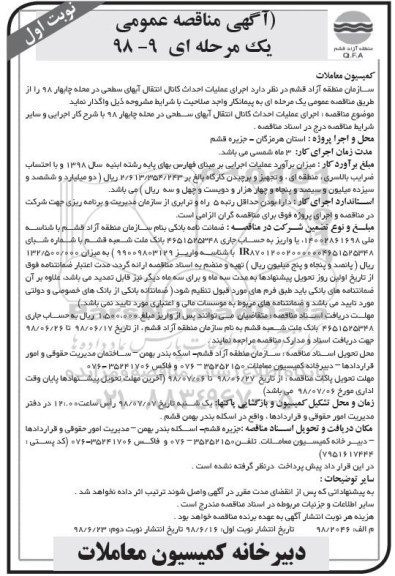 (آگهی مناقصه عمومی
یک مرحله ای ۹- ۹۸
نوبت اول
منطقه آزاد قشم
Q.F.A
کمیسیون معاملات
سازمان منطقه آزاد قشم در نظر دارد اجرای عملیات احداث کانال انتقال آبهای سطحی در محله چابهار ۹۸ را از
طریق مناقصه عمومی یک مرحله ای به پیمانکار واجد صلاحیت با شرایط مشروحه ذیل واگذار نماید
موضوع مناقصه : اجرای عملیات احداث کانال انتقال آبهای سطحی در محله چابهار ۹۸ با شرح کار اجرایی و سایر
شرایط مناقصه درج در اسناد مناقصه .
محل و اجرا پروژه : استان هرمزگان - جزیره قشم
مدت زمان اجرای کار: ۳ ماه شمسی می باشد.
مبلغ برآورد کار : میزان برآورد عملیات اجرایی بر مبنای فهارس بهای پایه رشته ابنیه سال ۱۳۹۸ و با احتساب
ضرایب بالاسری ، منطقه ای ، و تجهیز و برچیدن کارگاه بالغ بر ۲/۶۱۳/۳۵۴/۲۲۳ ریال ( دو میلیارد و ششصد و
سیزده میلیون و سیصد و پنجاه و چهار هزار و دویست و چهل و سه ریال ) می باشد.
استاندارد اجرای کار : دارا بودن حداقل رتبه ۵ راه و ترابری از سازمان مدیریت و برنامه ریزی جهت شرکت
در مناقصه و اجرای پروژه فوق برای مناقصه گران الزامی است.
مبلغ و نوع تضمین شرکت در مناقصه : ضمانت نامه بانکی بنام سازمان منطقه آزاد قشم با شناسه
ملی ۱۴۰۰۲۸۶۱۶۹۸، یا واریز به حساب جاری ۴۶۵۱۵۲۵۳۴۸ بانک ملت شعبه قشم با شماره شبای
ریال ( یکصد و سی و دو میلیون و پانصد هزار ریال ) تهیه و منضم به اسناد مناقصه ارائه گردد. مدت اعتبار ضمانتنامه فوق
از تاریخ اولین روز تحویل پیشنهادها به مدت سه ماه و برای سه ماه دیگر نیز قابل تمدید می باشد، علاوه بر آن
ضمانتنامه های بانکی باید طبق فرم های مورد قبول تنظیم شود( ضمانتنامه بانکی از بانک های خصوصی و دولتی
مورد تایید می باشد و ضمانتنامه های مربوط به موسسات مالی و اعتباری مورد تایید نمی باشد )
مهلت دریافت اسناد مناقصه : متقاضیان می توانند پس از واریز مبلغ ۱,۵۰۰,۰۰۰ ریال به حساب جاری
۴۶۵۱۵۲۵۳۴۸ بانک ملت شعبه قشم به نام سازمان منطقه آزاد قشم ، از تاریخ ۹۸/۰۶/۱۷ تا ۹۸/۰۶/۲۶
جهت دریافت اسناد و مدارک مناقصه مراجعه نمایند.
محل تحویل اسناد مناقصه : سازمان منطقه آزاد قشم- اسکه بندر بهمن – ساختمان مدیریت حقوقی و امور
قراردادها – دبیرخانه کمیسیون معاملات ۳۵۲۵۲۱۵۰ – ۰۷۶ و فاکس ۳۵۲۴۱۷۰۶-۰۷۶
مهلت تحویل پاکات مناقصه : از تاریخ ۹۸/۰۶/۲۷ تا ۹۸/۰۷/۰۶ (آخرین مهلت تحویل پیشنهادها پایان وقت
اداری مورخ ۹۸/۰۷/۰۶ می باشد)
زمان و محل تشکیل کمیسیون و بازگشایی پاکتها: یکشنبه تاریخ ۹۸/۰۷/۰۷ راس ساعت ۱۲:۰۰ در دفتر
مدیریت امور حقوقی و قراردادها ، واقع در اسکله بندر بهمن قشم .
مکان دریافت و تحویل اسناد مناقصه :جزیره قشم- اسکله بندر بهمن – مدیریت امور حقوقی و قراردادها
– دبیر خانه کمیسیون معاملات. تلفن: ۳۵۲۵۲۱۵۰ – ۰۷۶ و فاکس ۳۵۲۴۱۷۰۶-۰۷۶ (کد پستی :
۷۹۵۱۶۱۷۴۴۴)
در این قرار داد پیش پرداخت درنظر گرفته نشده است .
سایر توضیحات :
به پیشنهاداتی که پس از انقضای مدت مقرر در آگهی واصل شوند ترتیب اثر داده نخواهد شد .
سایر اطلاعات و جزئیات مربوطه در اسناد مناقصه مندرج است .
هزینه هر نوبت انتشار آگهی به عهده برنده مناقصه خواهد بود .
م الف: ۹۸/۲۰۴۶ تاریخ انتشار نوبت اول: ۹۸/۶/۱۶ تاریخ انتشار نوبت دوم: ۹۸/۶/۲۳
دبیرخانه کمیسیون معاملات